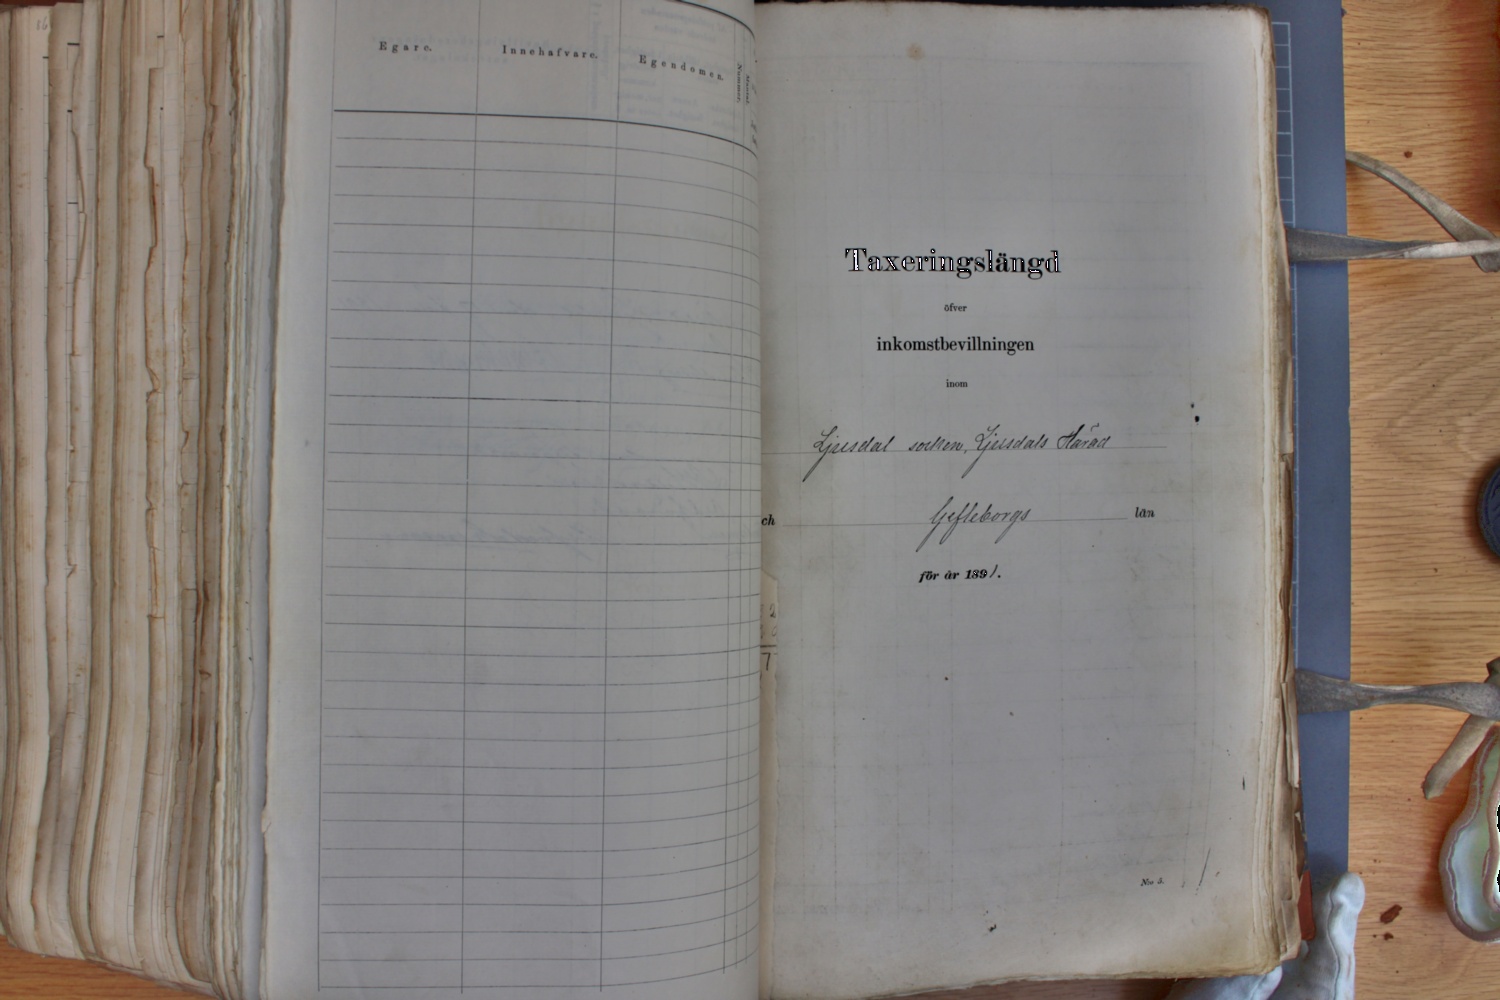 86
Egare.
Innehafvare.
Egendomen.
Nummer.
Taxeringslängd
öfver
inkomstbevillningen
inom
Ljusdal socken, Ljusdals Härad
ch Gefleborgs län
för år 1891.
2
7
No 5.